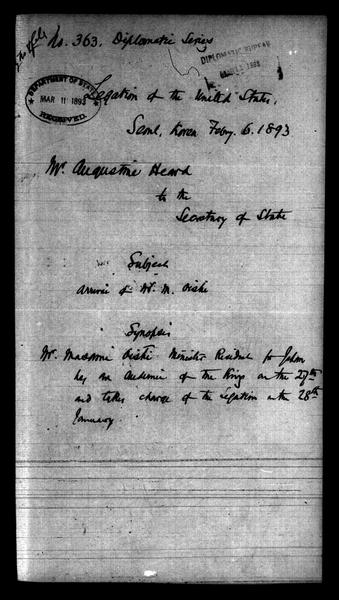 No. 363. Diplomatic Series
DIPLOMATIC BUREAU
1893
DEPARTMENT OF STATE
MAR 11 1893
RECEIVED
Legation of the United States,
Seoul, Korea Feby. 6. 1893
Mr. Augustine Heard
to the
Secretary of State
Subject
Arrival of Mr. M. Oishi
Synopsis
Mr. Masami Oishi Minister Resident for Japan
has an audience of the King on the 27th
and takes charge of the Legation on the 28th
January.